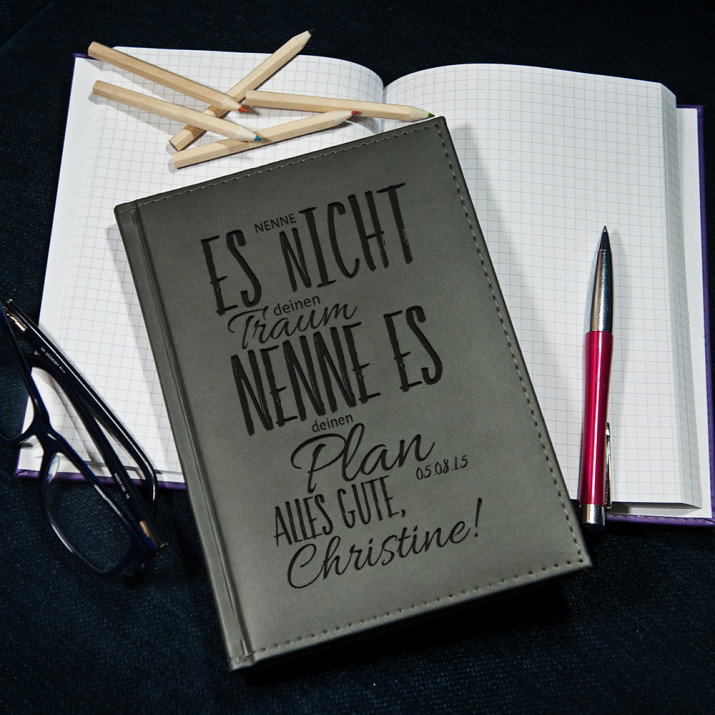 NENNE
ES NICHT
deinen
Traum
NENNE ES
deinen
Plan
05.08.15
ALLES GUTE,
Christine!